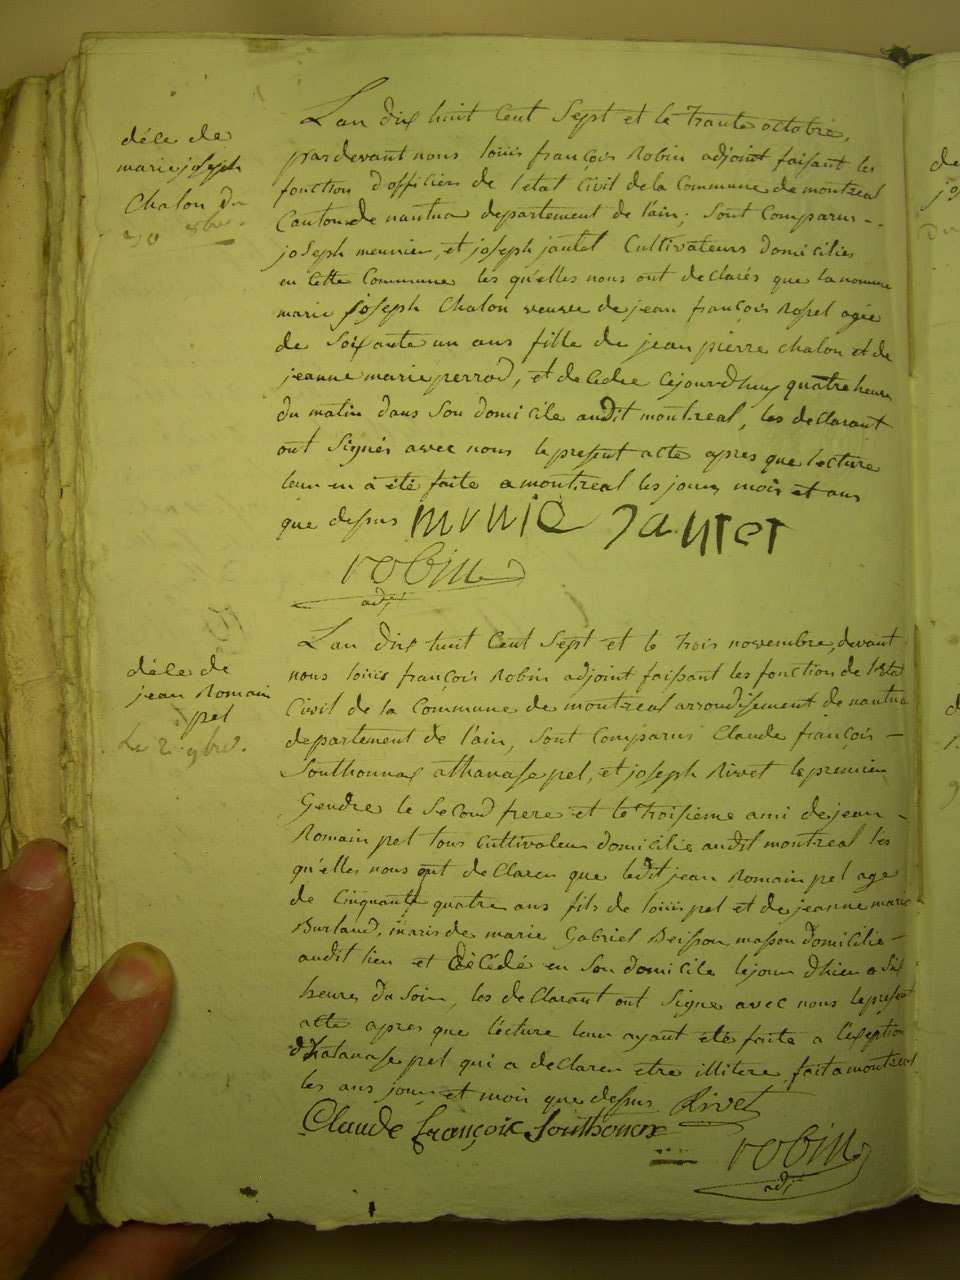 déce de
marie joseph
Chalon du
30 8bre.
Lan dix huit Cent Sept et le trante octobre,
pardevant nous loüis françois Robin adjoint faisant les
fonction d'officier de l'etat Civil de la Commune de montreal
Canton de nantua departement de l'ain, Sont Comparus -
joseph meunier, et joseph jantet Cultivateurs domiciliés
en Cette Commune les qu'elles nous ont declarés que la nomme
marie joseph Chalon veuve de jean françois Rosel agée
de Soixante un ans fille de jean pierre chalon et de
jeanne marie perrod, et decédée Cejourdhuy quatre heures
du matin dans Son domicile audit montreal, les declarant
ont Signés avec nous le present acte apres que lecture
leur en à été faite a montreal les jours mois et ans
que dessus munie jantet
robin
adj
déce de
jean Romain
pel
Le 2. 9bre.
Lan dix huit Cent Sept et le trois novembre, devant
nous loüis françois Robin adjoint faisant les fonction de l'etat
Civil de la Commune de montreal arrondisement de nantua
departement de l'ain, Sont Comparus Claude françois -
Southonnax athanase pel, et joseph Rivet le premier
Gendre le Second frere et le troisieme ami de jean -
Romain pel tous Cultivateur domicilie audit montreal les
qu'elles nous ont declaren que ledit jean Romain pel age
de Cinquante quatre ans fils de loüis pel et de jeanne marie
Burland, maris de marie Gabriel Beisson masson domicilie -
audit lieu et décédé en Son domicile le jour d'hier a Six
heures du Soir, les declarant ont Signe avec nous le present
acte apres que lecture leur ayant été faite a l'exeption
d'hatanase pel qui a declaren etre illitere, fait a montreal
les ans jour et mois que dessus Rivet
Claude françois Southonax
robin
adj